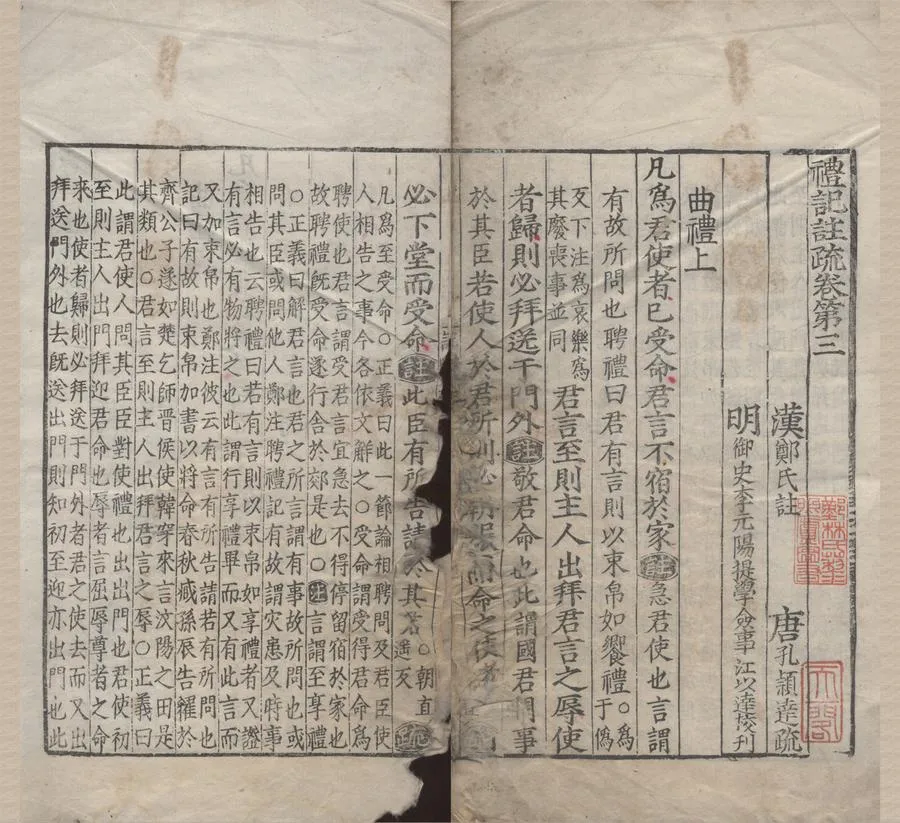 禮記註疏卷第三
漢鄭氏註 唐孔頴達疏
明御史李元陽提學僉事江以達校刊
曲禮上
凡爲君使者已受命君言不宿於家註急君使也言謂
有故所問也聘禮曰君有言則以束帛如饗禮○爲于僞
反下注爲哀樂爲其廢喪事並同 君言至則主人出拜君言之辱使
者歸則必拜送于門外註敬君命也此謂國君問事
於其臣若使人於君所則必朝服而命之使者
必下堂而受命註此臣有所告請於其君○朝直遥反疏
凡爲至受命○正義曰此一節論相聘問及君臣使
人相告之事今各依文解之○受命謂受得君命爲
聘使也君言謂受君言宜急去不得停留宿於家也
故聘禮旣受命遂行舍於郊是也○註言謂至享禮
○正義曰解君言也君之所言謂有事故所問也或
問其臣或問他人鄭注聘禮記有故謂灾患及時事
相告也云聘禮曰若有言則以束帛如享禮者又證
有言必有物將之也此謂行享禮畢而又有此言而
又加束帛也鄭注彼云有言有所告請若有所問也
記曰有故則束帛加書以將命春秋臧孫辰告糴於
齊公子遂如楚乞師晋侯使韓穿來言汶陽之田是
其類也○君言至則主人出拜君言之辱○正義曰
此謂君使人問其臣臣對使禮也出出門也君使初
至則主人出門拜迎君命也辱者言屈辱尊者之命
來也使者歸則必拜送于門外者君之使去而又出
拜送門外也去旣送出門則知初至迎亦出門也此